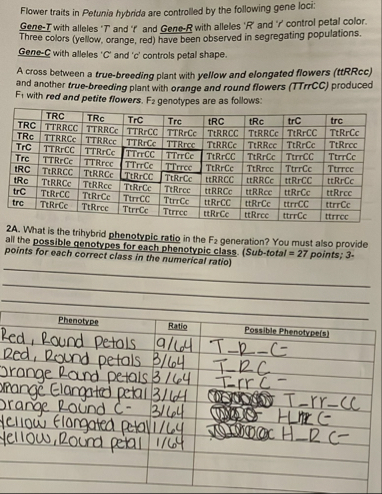 Flower traits in Petunia hybrida are controlled by the following gene loci:
Gene-T with alleles 'T' and 't' and Gene-R with alleles 'R' and 'r' control petal color.
Three colors (yellow, orange, red) have been observed in segregating populations.
Gene-C with alleles 'C' and 'c' controls petal shape.
A cross between a true-breeding plant with yellow and elongated flowers (ttRRcc)
and another true-breeding plant with orange and round flowers (TTrrCC) produced
F1 with red and petite flowers. F2 genotypes are as follows:
TRC TRc TrC Trc tRC tRc trC trc
TRC TTRRCC TTRRCc TTRrCC TTRrCc TtRRCC TtRRCc TtRrCC TtRrCc
TRc TTRRCc TTRRcc TTRrCc TTRrcc TtRRCc TtRRcc TtRrCc TtRrcc
TrC TTRrCC TTRrCc TTrrCC TTrrCc TtRrCC TtRrCc TtrrCC TtrrCc
Trc TTRrCc TTRrcc TTrrCc TTrrcc TtRrCc TtRrcc TtrrCc Ttrrcc
tRC TtRRCC TtRRCc TtRrCC TtRrCc ttRRCC ttRRCc ttRrCC ttRrCc
tRc TtRRCc TtRRcc TtRrCc TtRrcc ttRRCc ttRRcc ttRrCc ttRrcc
trC TtRrCC TtRrCc TtrrCC TtrrCc ttRrCC ttRrCc ttrrCC ttrrCc
trc TtRrCc TtRrcc TtrrCc Ttrrcc ttRrCc ttRrcc ttrrCc ttrrcc
2A. What is the trihybrid phenotypic ratio in the F2 generation? You must also provide
all the possible genotypes for each phenotypic class. (Sub-total = 27 points; 3-
points for each correct class in the numerical ratio)
Phenotype Ratio Possible Phenotype(s)
Red, Round Petals 9/64 T_R_C-
Red, Round petals 3/64 T_RC
Orange Round petals 3/64 T-rrC-
Orange Elangated petal 3/64 T_rr-CC
Orange Round C- 3/64
Yellow Elongated petal 1/64 H_RC-
Yellow, Round petal 1/64